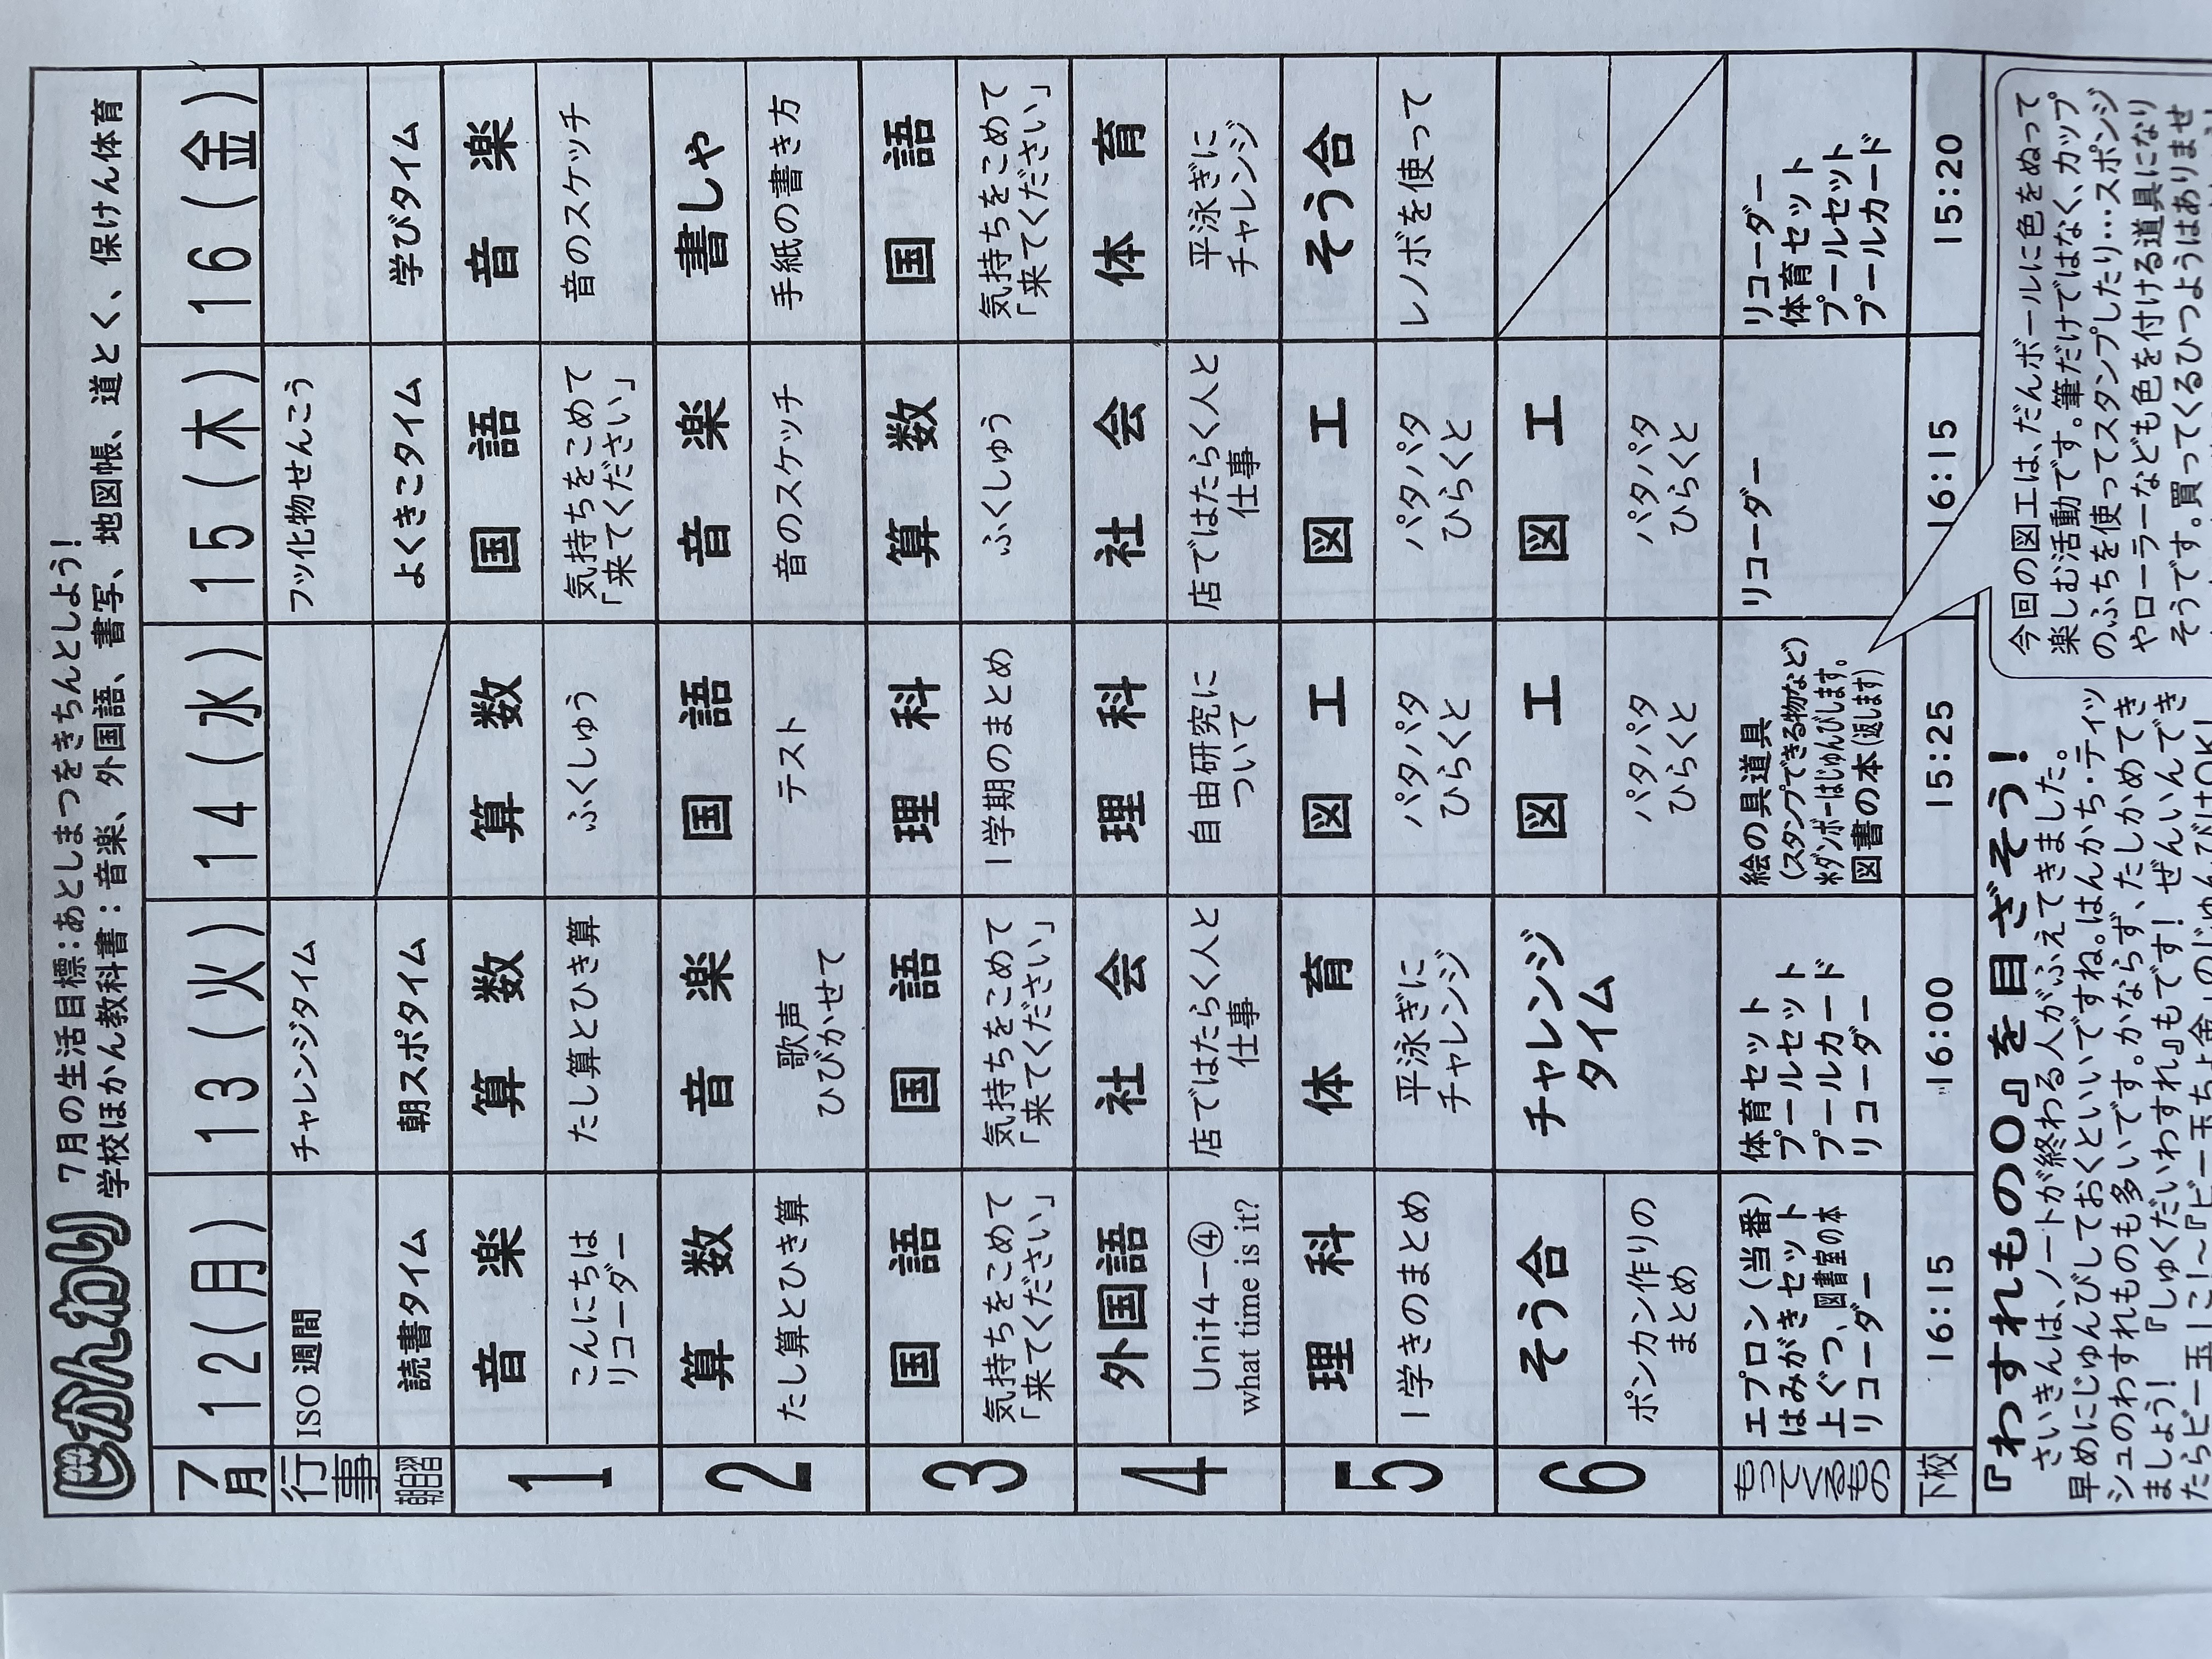 じかんわり
7月の生活目標：あとしまつをきちんとしよう！
学校ほかん教科書：音楽、外国語、書写、地図帳、道とく、保けん体育
7月 12(月) 13(火) 14(水) 15(木) 16(金)
行事 ISO週間 チャレンジタイム フッ化物せんこう
朝自習 読書タイム 朝スポタイム よくきこタイム 学びタイム
1 音楽 算数 算数 国語 音楽
こんにちは たし算とひき算 ふくしゅう 気持ちをこめて 音のスケッチ
リコーダー 「来てください」
2 算数 音楽 国語 音楽 書しゃ
たし算とひき算 歌声 テスト 音のスケッチ 手紙の書き方
ひびかせて
3 国語 国語 理科 算数 国語
気持ちをこめて 気持ちをこめて 1学期のまとめ ふくしゅう 気持ちをこめて
「来てください」 「来てください」 「来てください」
4 外国語 社会 理科 社会 体育
Unit4-④ 店ではたらく人と 自由研究に 店ではたらく人と 平泳ぎに
what time is it? 仕事 ついて 仕事 チャレンジ
5 理科 体育 図工 図工 そう合
1学きのまとめ 平泳ぎに パタパタ パタパタ レノボを使って
チャレンジ ひらくと ひらくと
6 そう合 チャレンジ 図工 図工
タイム
ポンカン作りの パタパタ パタパタ
まとめ ひらくと ひらくと
もってくるもの エプロン(当番) 体育セット 絵の具道具 リコーダー リコーダー
はみがきセット プールセット (スタンプできる物など) 体育セット
上ぐつ、図書室の本 プールカード ※ダンボーはじゅんびします。 プールセット
リコーダー リコーダー 図書の本(返します) プールカード
下校 16:15 16:00 15:25 16:15 15:20
『わすれもの〇』を目ざそう！
さいきんは、ノートが終わる人がふえてきました。
早めにじゅんびしておくといいですね。はんかち・ティッ
シュのわすれものも多いです。かならず、たしかめてき
ましょう！『しゅくだいわすれ』もです！ぜんいんでき
今回の図工は、だんボールに色をぬって
楽しむ活動です。筆だけではなく、カップ
のふちを使ってスタンプしたり…スポンジ
やローラーなども色を付ける道具になり
そうです。買ってくるひつようはありませ